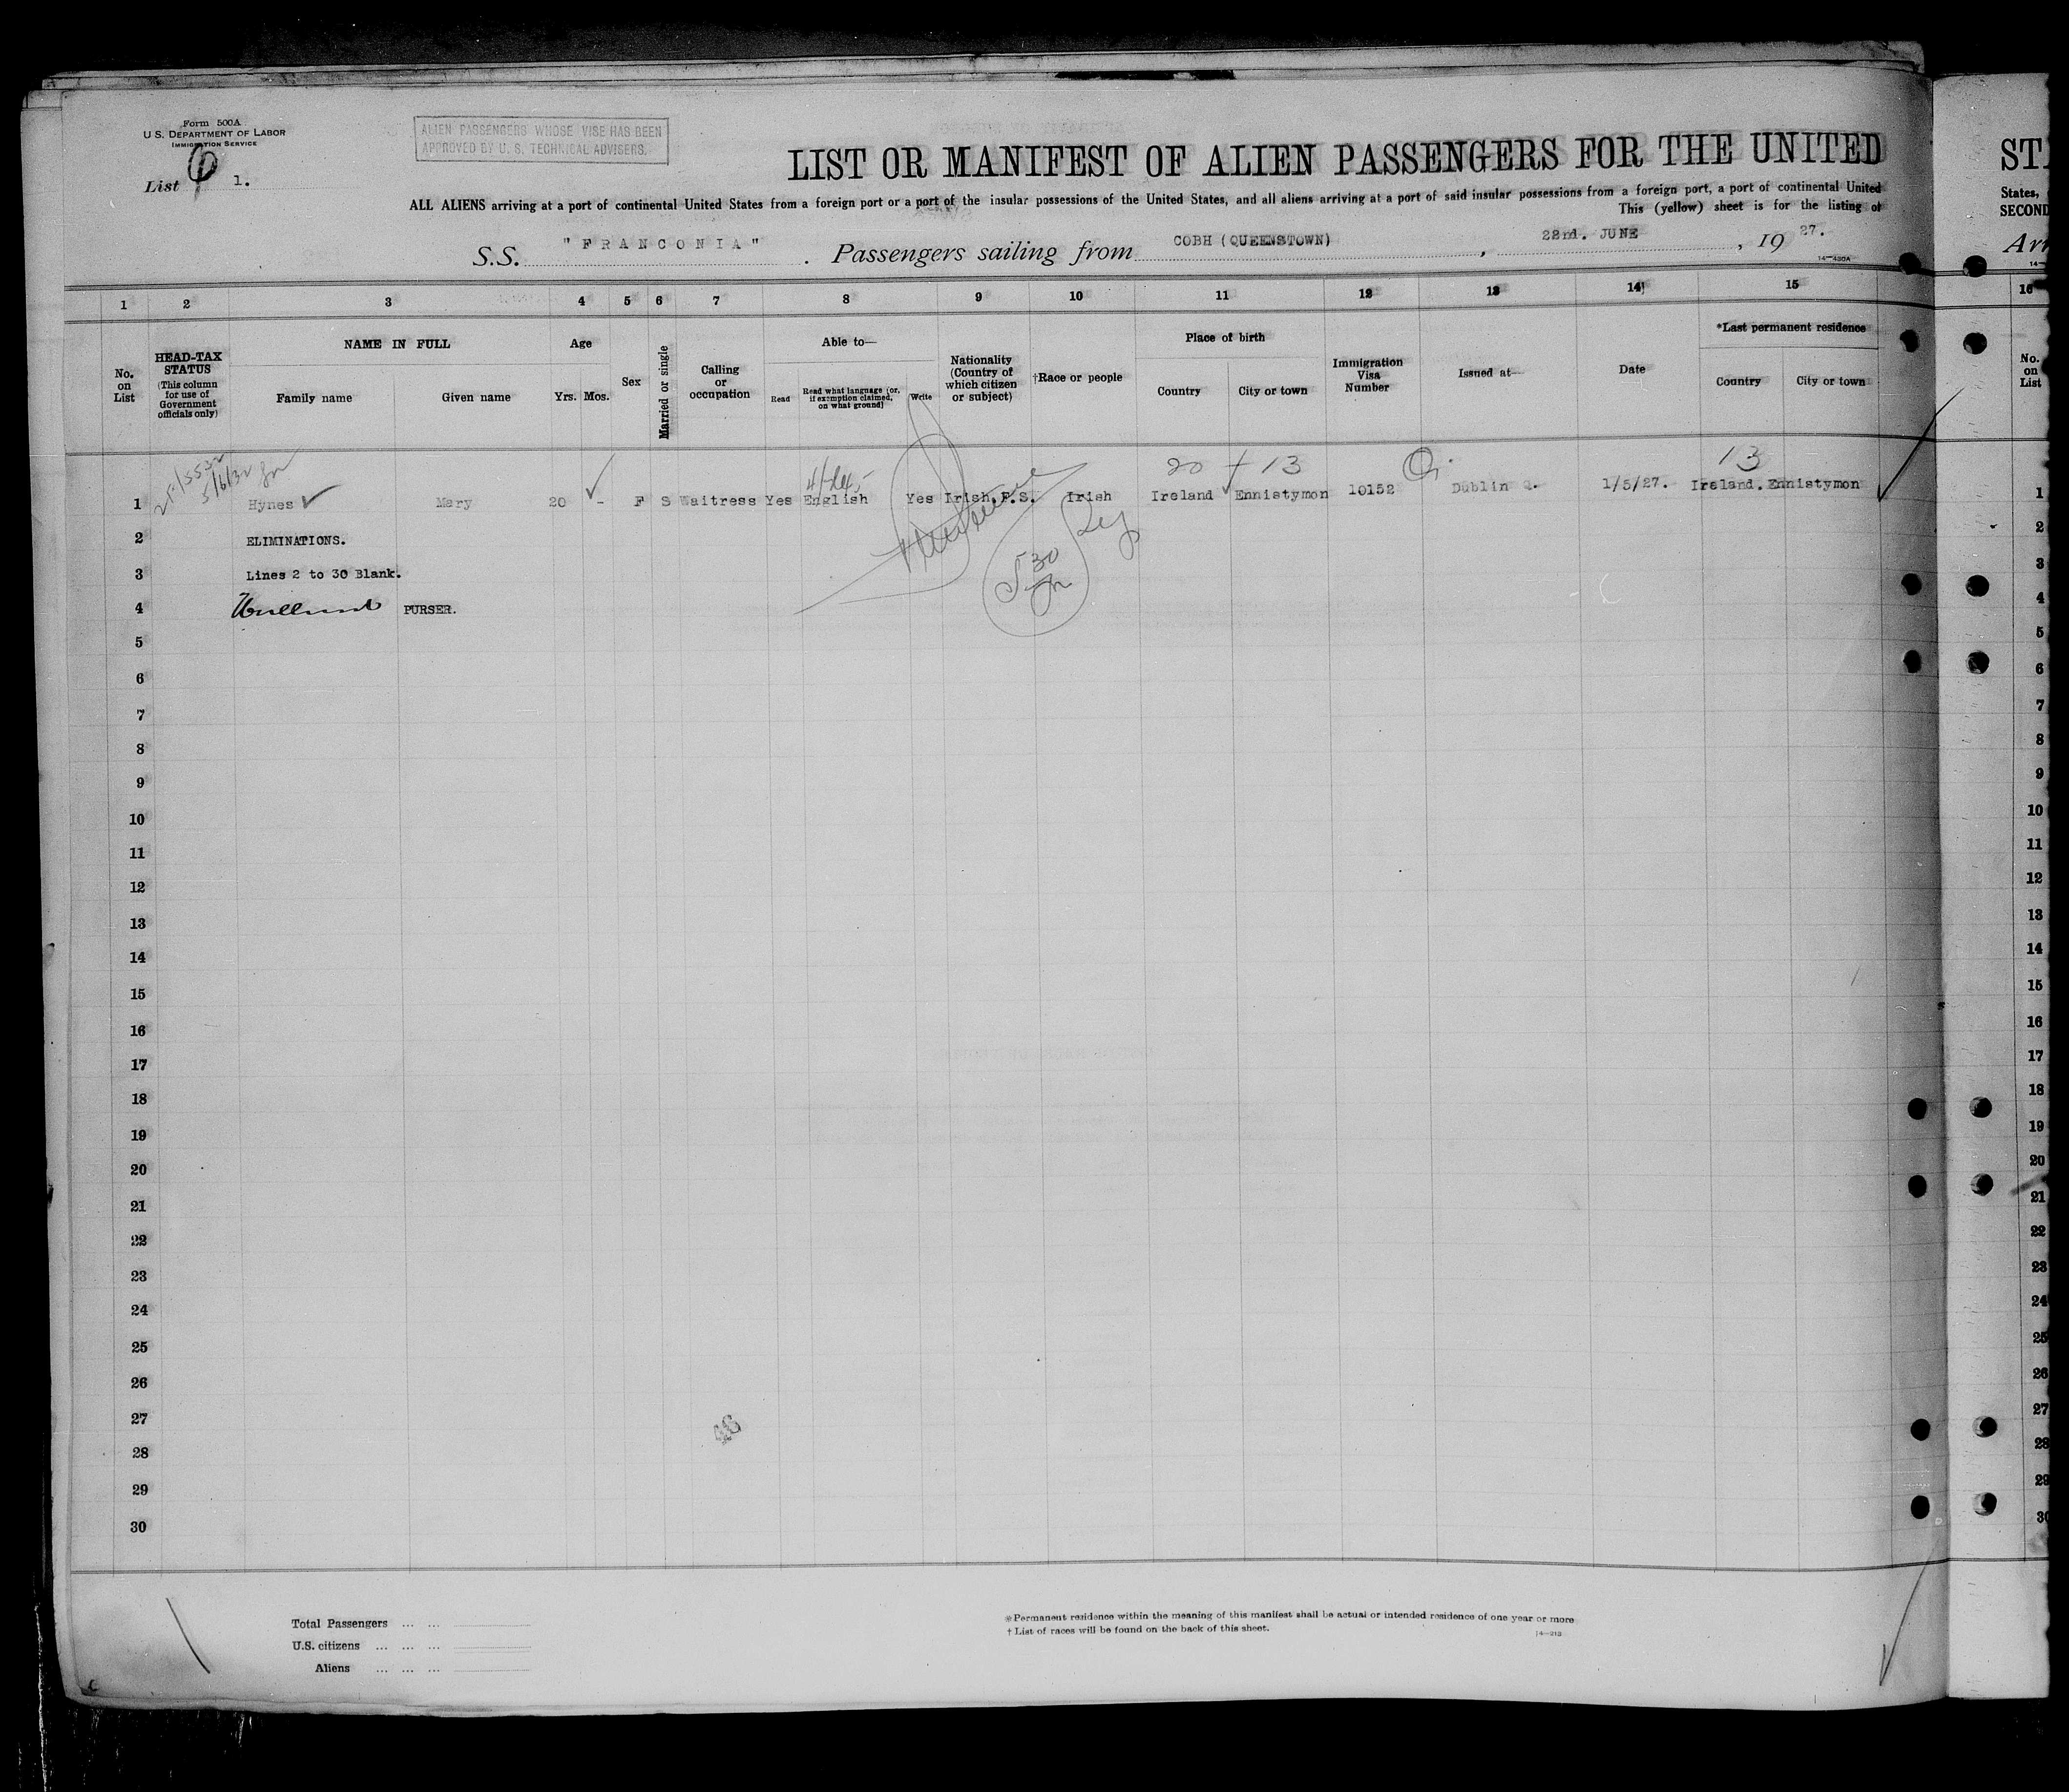 Form 500A
U. S. DEPARTMENT OF LABOR
IMMIGRATION SERVICE
List 1.
ALIEN PASSENGERS WHOSE VISE HAS BEEN
APPROVED BY U. S. TECHNICAL ADVISERS.
LIST OR MANIFEST OF ALIEN PASSENGERS FOR THE UNITED
ALL ALIENS arriving at a port of continental United States from a foreign port or a port of the insular possessions of the United States, and all aliens arriving at a port of said insular possessions from a foreign port, a port of continental United
This (yellow) sheet is for the listing of
S.S. "FRANCONIA". Passengers sailing from COBH (QUEENSTOWN), 22nd. JUNE, 1927.
14—430A
STA
States,
SECOND
Arr
14—
1 2 3 4 5 6 7 8 9 10 11 12 13 14 15 16
No. on List
HEAD-TAX STATUS
(This column for use of Government officials only)
NAME IN FULL
Family name Given name
Age
Yrs. Mos.
Sex
Married or single
Calling or occupation
Able to—
Read
Read what language [or, if exemption claimed, on what ground]
Write
Nationality (Country of which citizen or subject)
†Race or people
Place of birth
Country City or town
Immigration Visa Number
Issued at—
Date
*Last permanent residence
Country City or town
No. on List
5/6/32
20 + 13
13
1 Hynes ✓ Mary 20 ✓ - F S Waitress Yes English Yes Irish F.S. Irish Ireland ✓ Ennistymon 10152 Dublin Q. 1/5/27. Ireland. Ennistymon 1
2 ELIMINATIONS. 2
3 Lines 2 to 30 Blank. 3
530
4 PURSER. 4
5 5
6 6
7 7
8 8
9 9
10 10
11 11
12 12
13 13
14 14
15 15
16 16
17 17
18 18
19 19
20 20
21 21
22 22
23 23
24 24
25 25
26 26
27 27
28 28
29 29
30 30
Total Passengers ... ...
U.S. citizens ... ... ...
Aliens ... ... ...
*Permanent residence within the meaning of this manifest shall be actual or intended residence of one year or more
† List of races will be found on the back of this sheet.
14—213